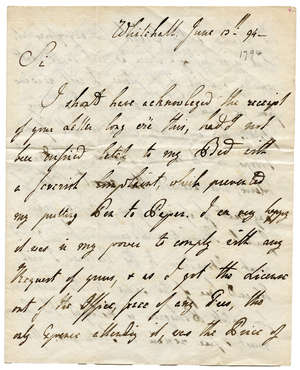 Whitehall June 13th 94 -
1794
Sir
I should have acknowledged the receipt
of your Letter long e're this, had I not
been confined lately to my Bed with
a feverish complaint, which prevented
my putting Pen to Paper. I am very happy
it was in my power to comply with any
Request of yours, & as I got the License
out of the Office, free of any Fees, the
only Expence attending it, was the Price of